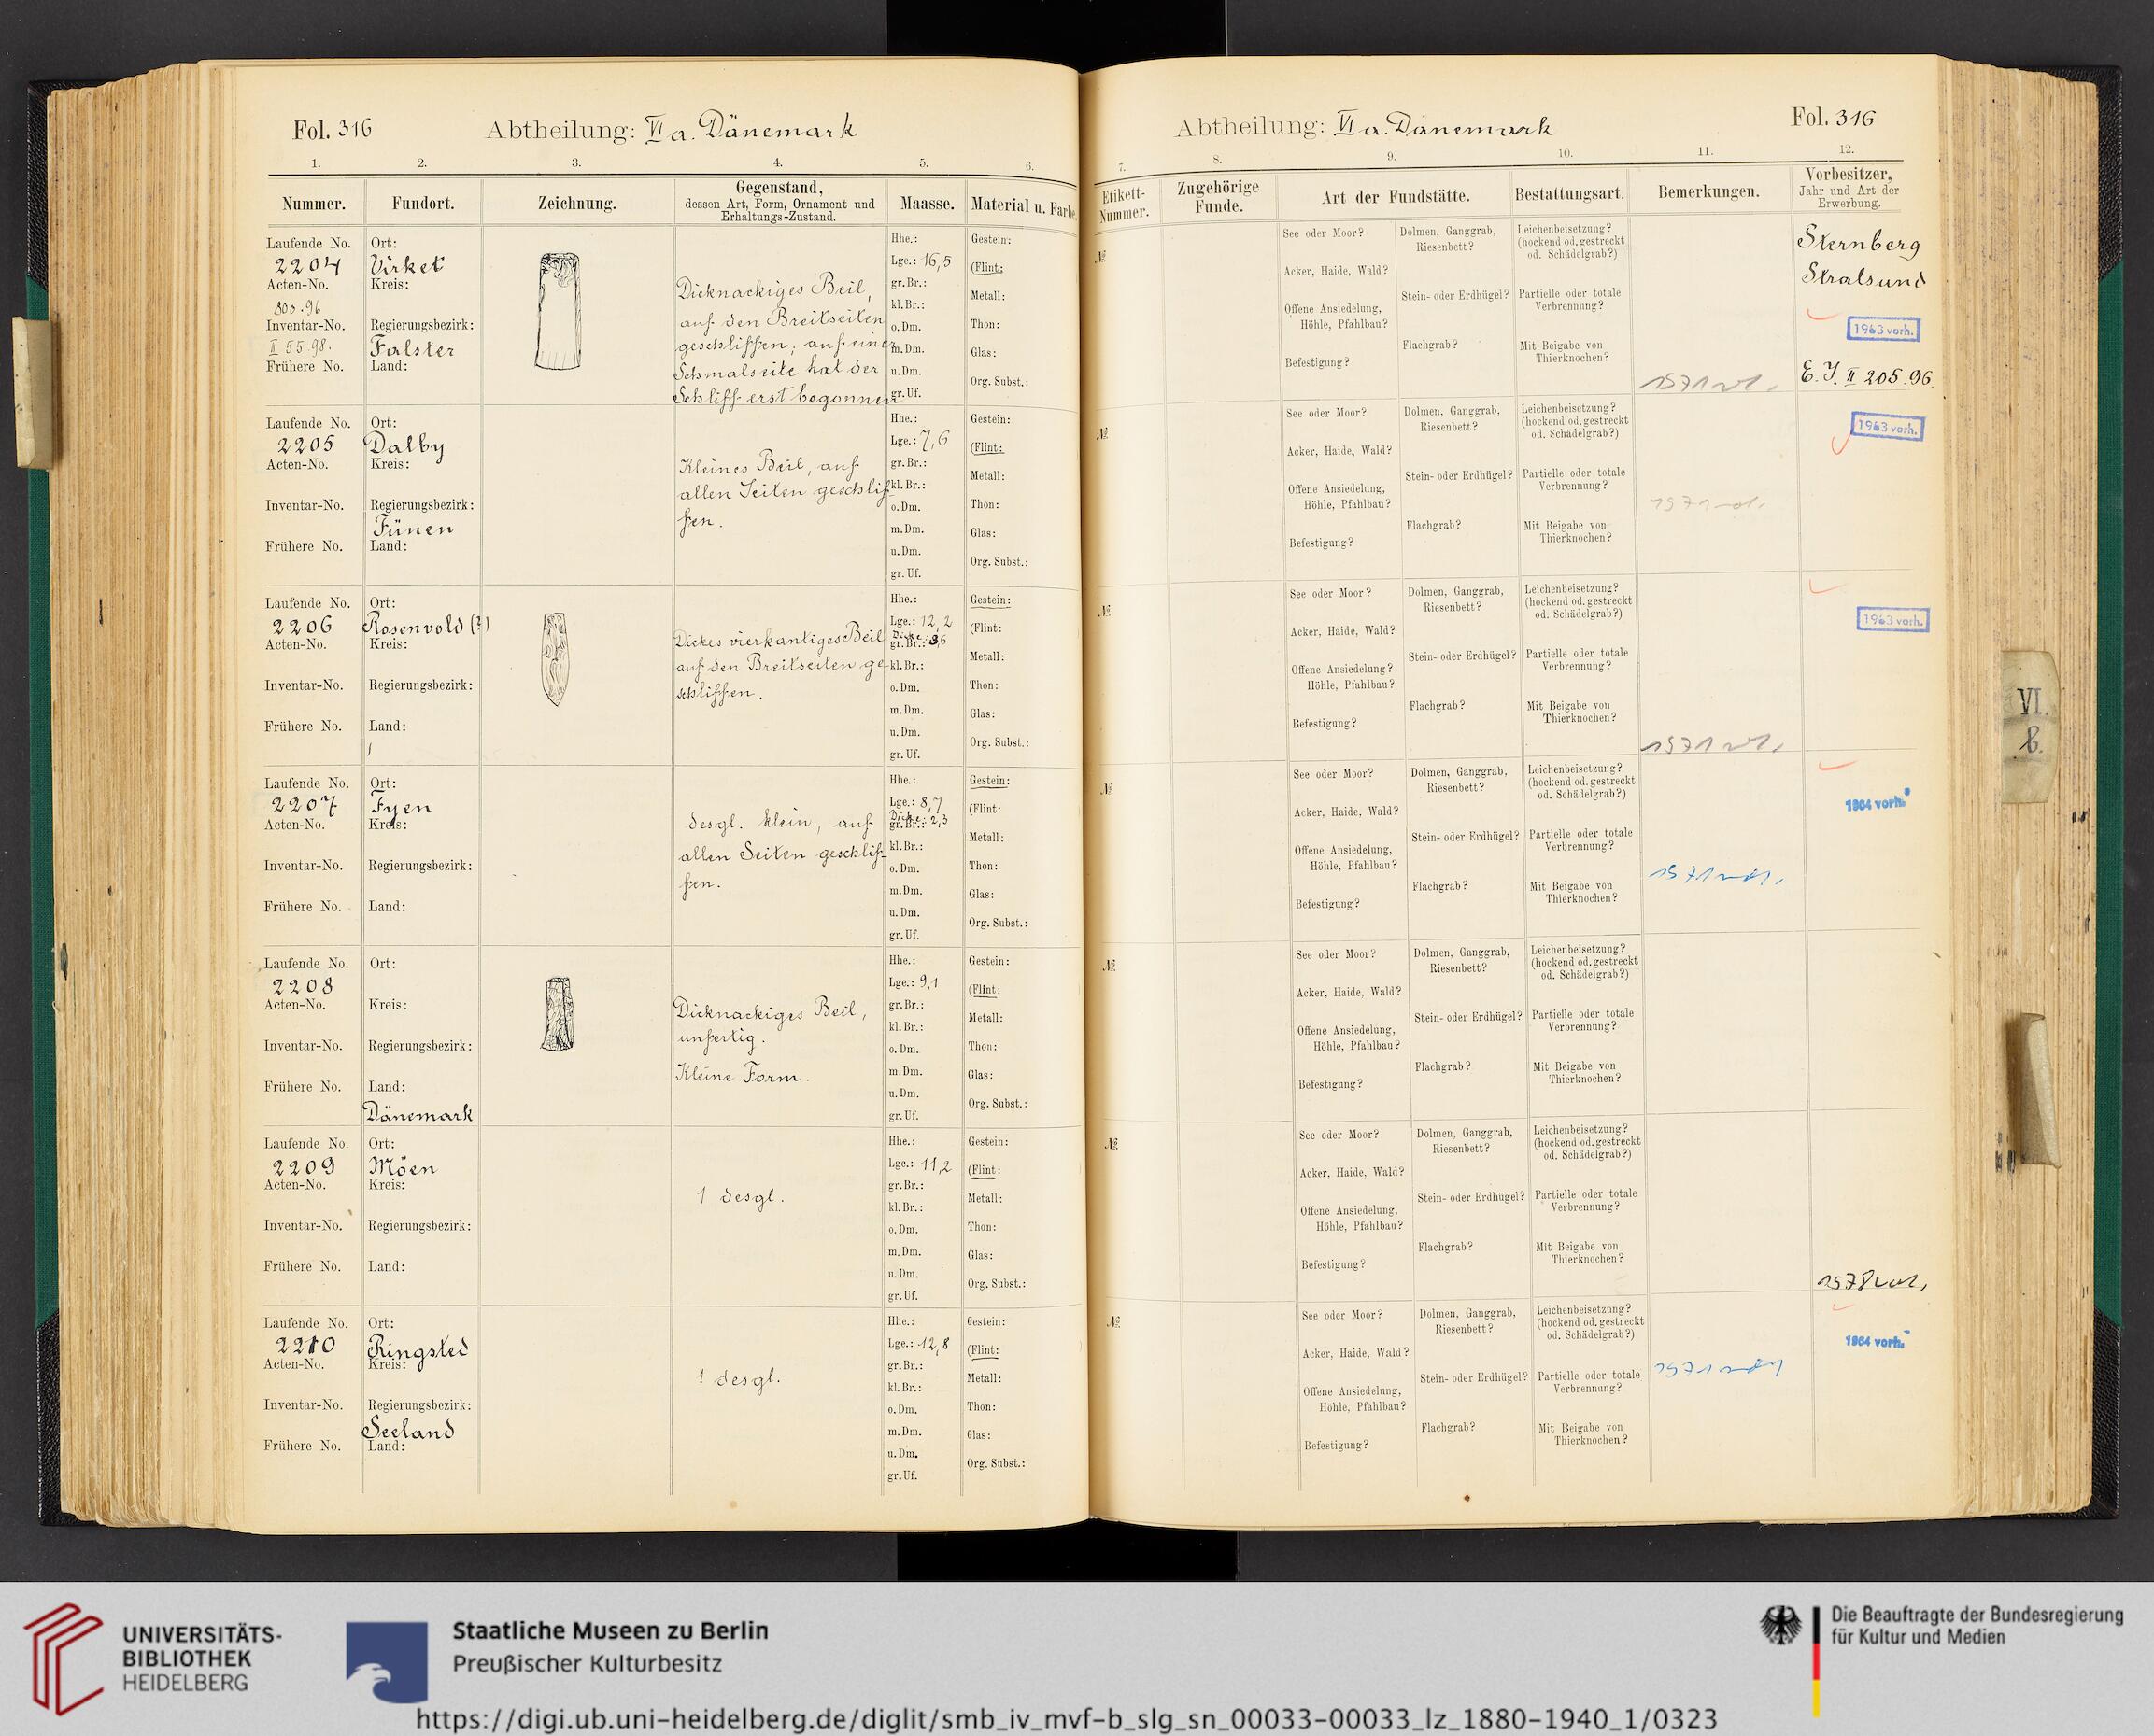 Fol. 316
Abtheilung: VI a. Dänemark
1. 2. 3. 4. 5. 6.
Nummer.
Fundort.
Zeichnung.
Gegenstand,
dessen Art, Form, Ornament und
Erhaltungs-Zustand.
Maasse.
Material u. Farbe.
Laufende No.
2204
Acten-No.
800.96
Inventar-No.
II 55.98.
Frühere No.
Ort:
Virket
Kreis:
Regierungsbezirk:
Falster
Land:
Dicknackiges Beil,
auf den Breitseiten
geschliffen; auf einer
Schmalseite hat der
Schliff erst begonnen
Hhe.:
Lge.: 16,5
gr. Br.:
kl. Br.:
o. Dm.
m. Dm.
u. Dm.
gr. Uf.
Gestein:
(Flint:
Metall:
Thon:
Glas:
Org. Subst.:
Laufende No.
2205
Acten-No.
Inventar-No.
Frühere No.
Ort:
Dalby
Kreis:
Regierungsbezirk:
Fünen
Land:
Kleines Beil, auf
allen Seiten geschlif
fen.
Hhe.:
Lge.: 7,6
gr. Br.:
kl. Br.:
o. Dm.
m. Dm.
u. Dm.
gr. Uf.
Gestein:
(Flint:
Metall:
Thon:
Glas:
Org. Subst.:
Laufende No.
2206
Acten-No.
Inventar-No.
Frühere No.
Ort:
Rosenvold (?)
Kreis:
Regierungsbezirk:
Land:
Dickes vierkantiges Beil
auf den Breitseiten ge-
schliffen.
Hhe.:
Lge.: 12,2
Dicke:
gr. Br.: 3,6
kl. Br.:
o. Dm.
m. Dm.
u. Dm.
gr. Uf.
Gestein:
(Flint:
Metall:
Thon:
Glas:
Org. Subst.:
Laufende No.
2207
Acten-No.
Inventar-No.
Frühere No.
Ort:
Fyen
Kreis:
Regierungsbezirk:
Land:
desgl. klein, auf
allen Seiten geschlif-
fen.
Hhe.:
Lge.: 8,7
Dicke:
gr. Br.: 2,3
kl. Br.:
o. Dm.
m. Dm.
u. Dm.
gr. Uf.
Gestein:
(Flint:
Metall:
Thon:
Glas:
Org. Subst.:
Laufende No.
2208
Acten-No.
Inventar-No.
Frühere No.
Ort:
Kreis:
Regierungsbezirk:
Land:
Dänemark
Dicknackiges Beil,
unfertig.
Kleine Form.
Hhe.:
Lge.: 9,1
gr. Br.:
kl. Br.:
o. Dm.
m. Dm.
u. Dm.
gr. Uf.
Gestein:
(Flint:
Metall:
Thon:
Glas:
Org. Subst.:
Laufende No.
2209
Acten-No.
Inventar-No.
Frühere No.
Ort:
Möen
Kreis:
Regierungsbezirk:
Land:
1 desgl.
Hhe.:
Lge.: 11,2
gr. Br.:
kl. Br.:
o. Dm.
m. Dm.
u. Dm.
gr. Uf.
Gestein:
(Flint:
Metall:
Thon:
Glas:
Org. Subst.:
Laufende No.
2210
Acten-No.
Inventar-No.
Frühere No.
Ort:
Ringsted
Kreis:
Regierungsbezirk:
Seeland
Land:
1 desgl.
Hhe.:
Lge.: 12,8
gr. Br.:
kl. Br.:
o. Dm.
m. Dm.
u. Dm.
gr. Uf.
Gestein:
(Flint:
Metall:
Thon:
Glas:
Org. Subst.:
Abtheilung: VI a. Dänemark
Fol. 316
7. 8. 9. 10. 11. 12.
Etikett-
Nummer.
Zugehörige
Funde.
Art der Fundstätte.
Bestattungsart.
Bemerkungen.
Vorbesitzer,
Jahr und Art der
Erwerbung.
№
See oder Moor?
Acker, Haide, Wald?
Offene Ansiedelung,
Höhle, Pfahlbau?
Befestigung?
Dolmen, Ganggrab,
Riesenbett?
Stein- oder Erdhügel?
Flachgrab?
Leichenbeisetzung?
(hockend od. gestreckt
od. Schädelgrab?)
Partielle oder totale
Verbrennung?
Mit Beigabe von
Thierknochen?
Sternberg
Stralsund
1963 vorh.
E. J. II 205.96.
№
See oder Moor?
Acker, Haide, Wald?
Offene Ansiedelung,
Höhle, Pfahlbau?
Befestigung?
Dolmen, Ganggrab,
Riesenbett?
Stein- oder Erdhügel?
Flachgrab?
Leichenbeisetzung?
(hockend od. gestreckt
od. Schädelgrab?)
Partielle oder totale
Verbrennung?
Mit Beigabe von
Thierknochen?
1963 vorh.
№
See oder Moor?
Acker, Haide, Wald?
Offene Ansiedelung?
Höhle, Pfahlbau?
Befestigung?
Dolmen, Ganggrab,
Riesenbett?
Stein- oder Erdhügel?
Flachgrab?
Leichenbeisetzung?
(hockend od. gestreckt
od. Schädelgrab?)
Partielle oder totale
Verbrennung?
Mit Beigabe von
Thierknochen?
1963 vorh.
№
See oder Moor?
Acker, Haide, Wald?
Offene Ansiedelung,
Höhle, Pfahlbau?
Befestigung?
Dolmen, Ganggrab,
Riesenbett?
Stein- oder Erdhügel?
Flachgrab?
Leichenbeisetzung?
(hockend od. gestreckt
od. Schädelgrab?)
Partielle oder totale
Verbrennung?
Mit Beigabe von
Thierknochen?
1964 vorh.
№
See oder Moor?
Acker, Haide, Wald?
Offene Ansiedelung,
Höhle, Pfahlbau?
Befestigung?
Dolmen, Ganggrab,
Riesenbett?
Stein- oder Erdhügel?
Flachgrab?
Leichenbeisetzung?
(hockend od. gestreckt
od. Schädelgrab?)
Partielle oder totale
Verbrennung?
Mit Beigabe von
Thierknochen?
№
See oder Moor?
Acker, Haide, Wald?
Offene Ansiedelung,
Höhle, Pfahlbau?
Befestigung?
Dolmen, Ganggrab,
Riesenbett?
Stein- oder Erdhügel?
Flachgrab?
Leichenbeisetzung?
(hockend od. gestreckt
od. Schädelgrab?)
Partielle oder totale
Verbrennung?
Mit Beigabe von
Thierknochen?
№
See oder Moor?
Acker, Haide, Wald?
Offene Ansiedelung,
Höhle, Pfahlbau?
Befestigung?
Dolmen, Ganggrab,
Riesenbett?
Stein- oder Erdhügel?
Flachgrab?
Leichenbeisetzung?
(hockend od. gestreckt
od. Schädelgrab?)
Partielle oder totale
Verbrennung?
Mit Beigabe von
Thierknochen?
1964 vorh.
VI.
b.
UNIVERSITÄTS-
BIBLIOTHEK
HEIDELBERG
Staatliche Museen zu Berlin
Preußischer Kulturbesitz
Die Beauftragte der Bundesregierung
für Kultur und Medien
https://digi.ub.uni-heidelberg.de/diglit/smb_iv_mvf-b_slg_sn_00033-00033_lz_1880-1940_1/0323